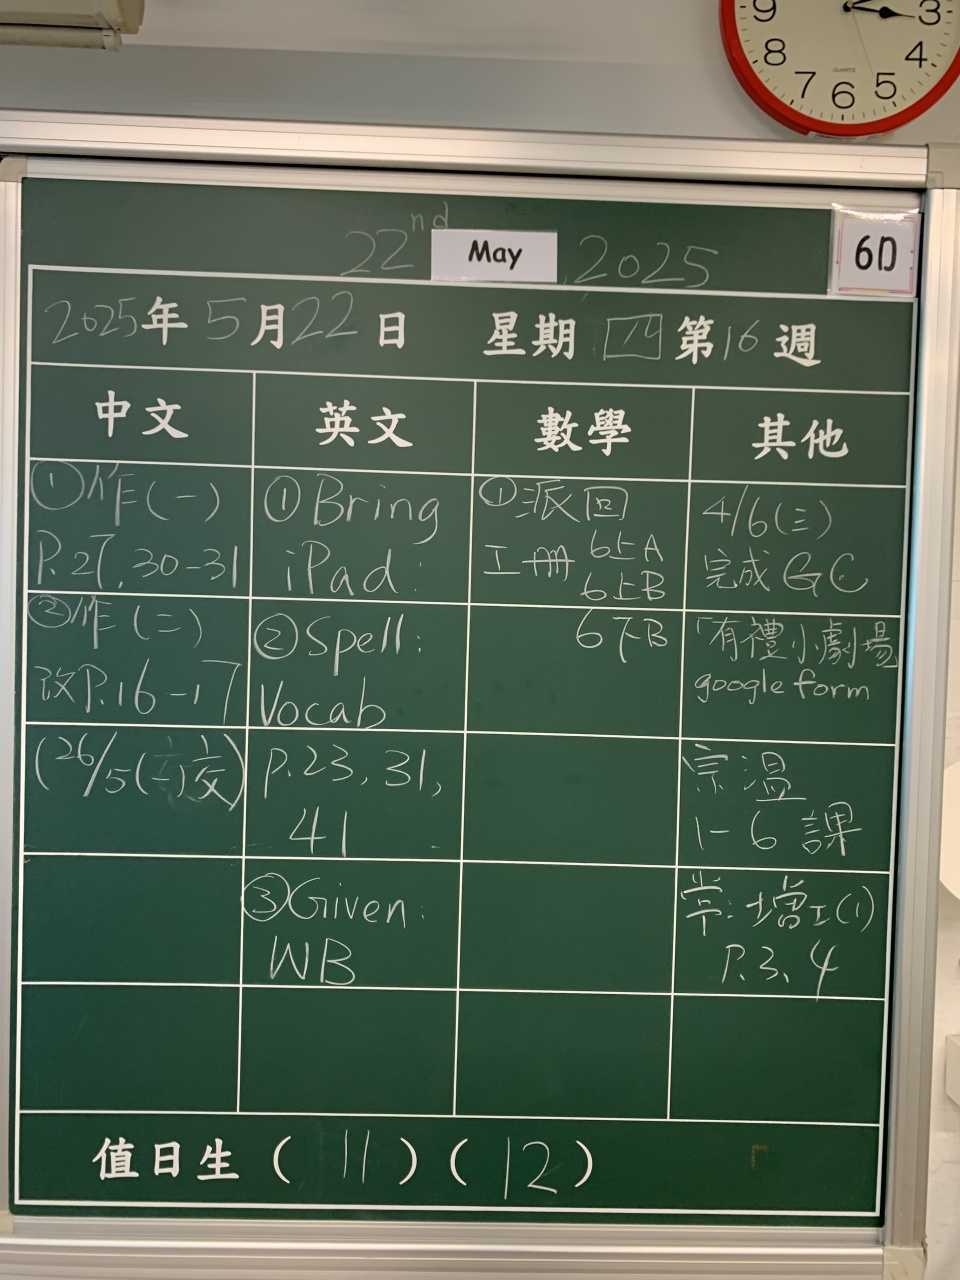 9
3
8
4
QUARTZ
7
5
6
22nd May, 2025
6D
2025年5月22日 星期四第16週
中文
①作(一)
P.27, 30-31
②作(二)
改P.16-17
(26/5(一)交)
英文
①Bring
iPad.
②Spell:
Vocab
P.23, 31,
41
③Given:
WB
數學
①派回
工冊 6上A
6上B
6下B
其他
4/6(三)
完成GC
「有禮小劇場
google form
宗溫
1-6課
常:增工(1)
P.3、4
值日生(11)(12)